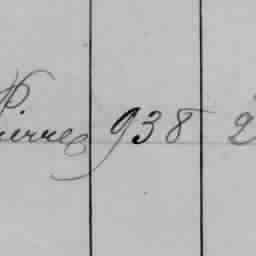 Pierre 938 2